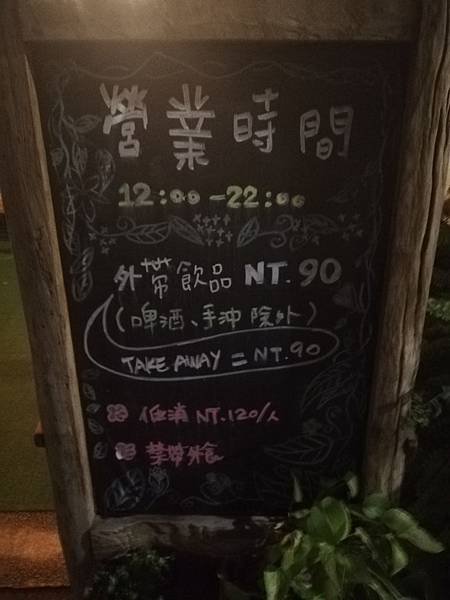 營業時間
12:00-22:00
外帶飲品 NT.90
(啤酒、手沖除外)
TAKE AWAY = NT.90
低消 NT.120/人
禁帶外食